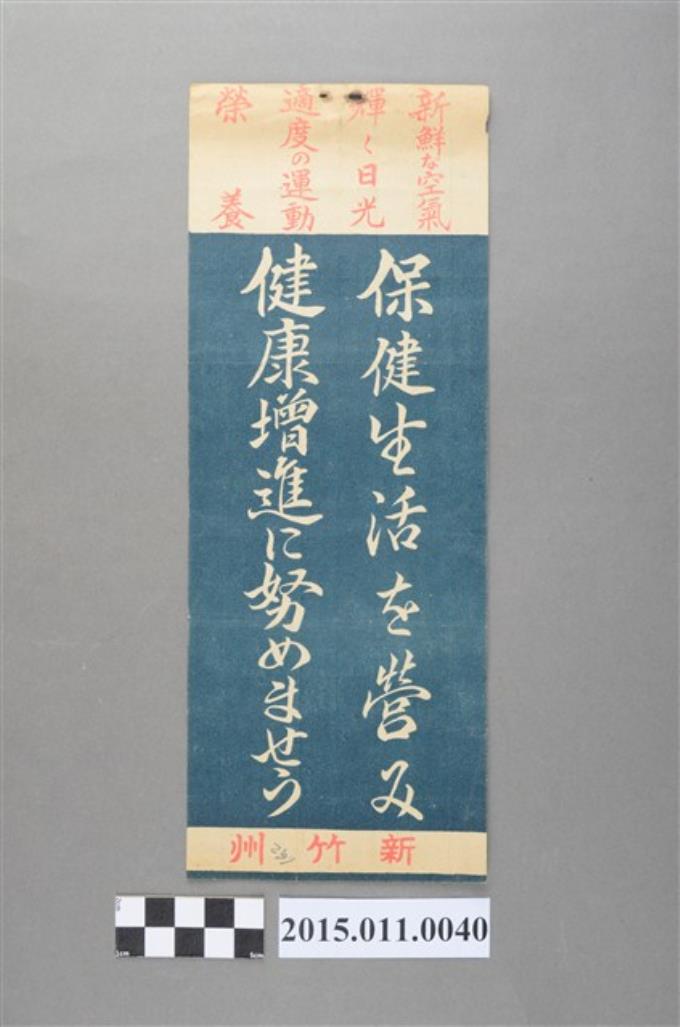 新鮮な空氣
輝く日光
適度の運動
榮養
保健生活を營み
健康增進に努めませう
新竹州
2015.011.0040